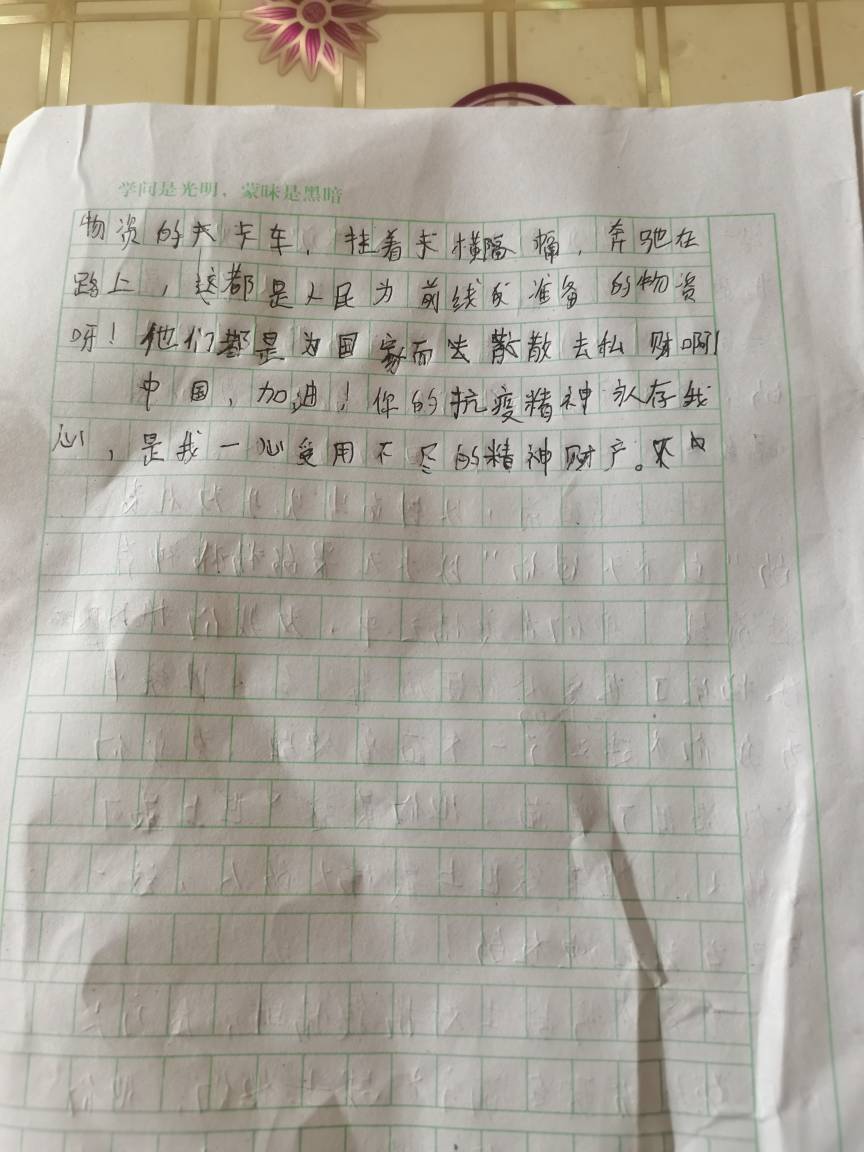 学问是光明，蒙昧是黑暗
物资的大卡车，挂着大横幅，奔驰在
路上，这都是人民为前线所准备的物资
呀！他们都是为国家而去散散去私财啊！
中国，加油！你的抗疫精神永存我
心，是我一心受用不尽的精神财产。